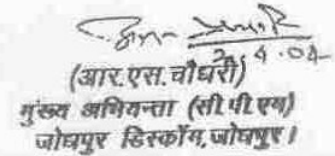 2.4.04
(आर.एस.चौधरी)
मुंख्य अभियन्ता (सी.पी.एम)
जोधपुर डिस्कॉम,जोधपुर।